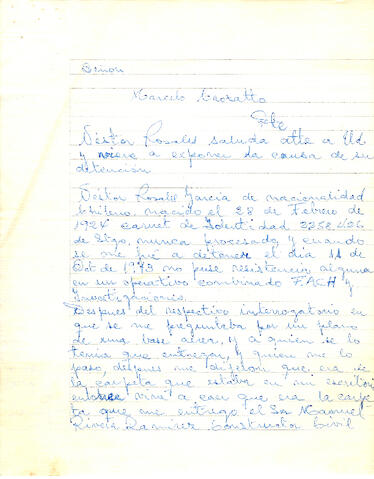 Señor
Marcelo
Pte
Néstor Rosales saluda atte a Ud
y viene a exponer la causa de su
detención
Néstor Rosales Garcia de nacionalidad
Chileno, nacido el 28 de Febrero de
1924 carnet de Identidad
de Stgo, nunca procesado y cuando
se me fué a detener el dia 11 de
Oct de 1973 no puse resistencia alguna
en un operativo combinado F.ACH y
Investigaciones.
Despues del respectivo interrogatorio en
que se me preguntaba por un plano
de una base aerea, y a quien se lo
tenia que entregar, y quien me lo
paso, despues me dijeron que era de
la carpeta que estaba en mi escritorio
entonces vine a caer que era la carpe
ta que me entrego el Sr Manuel
Rivera Ramirez Constructor Civil